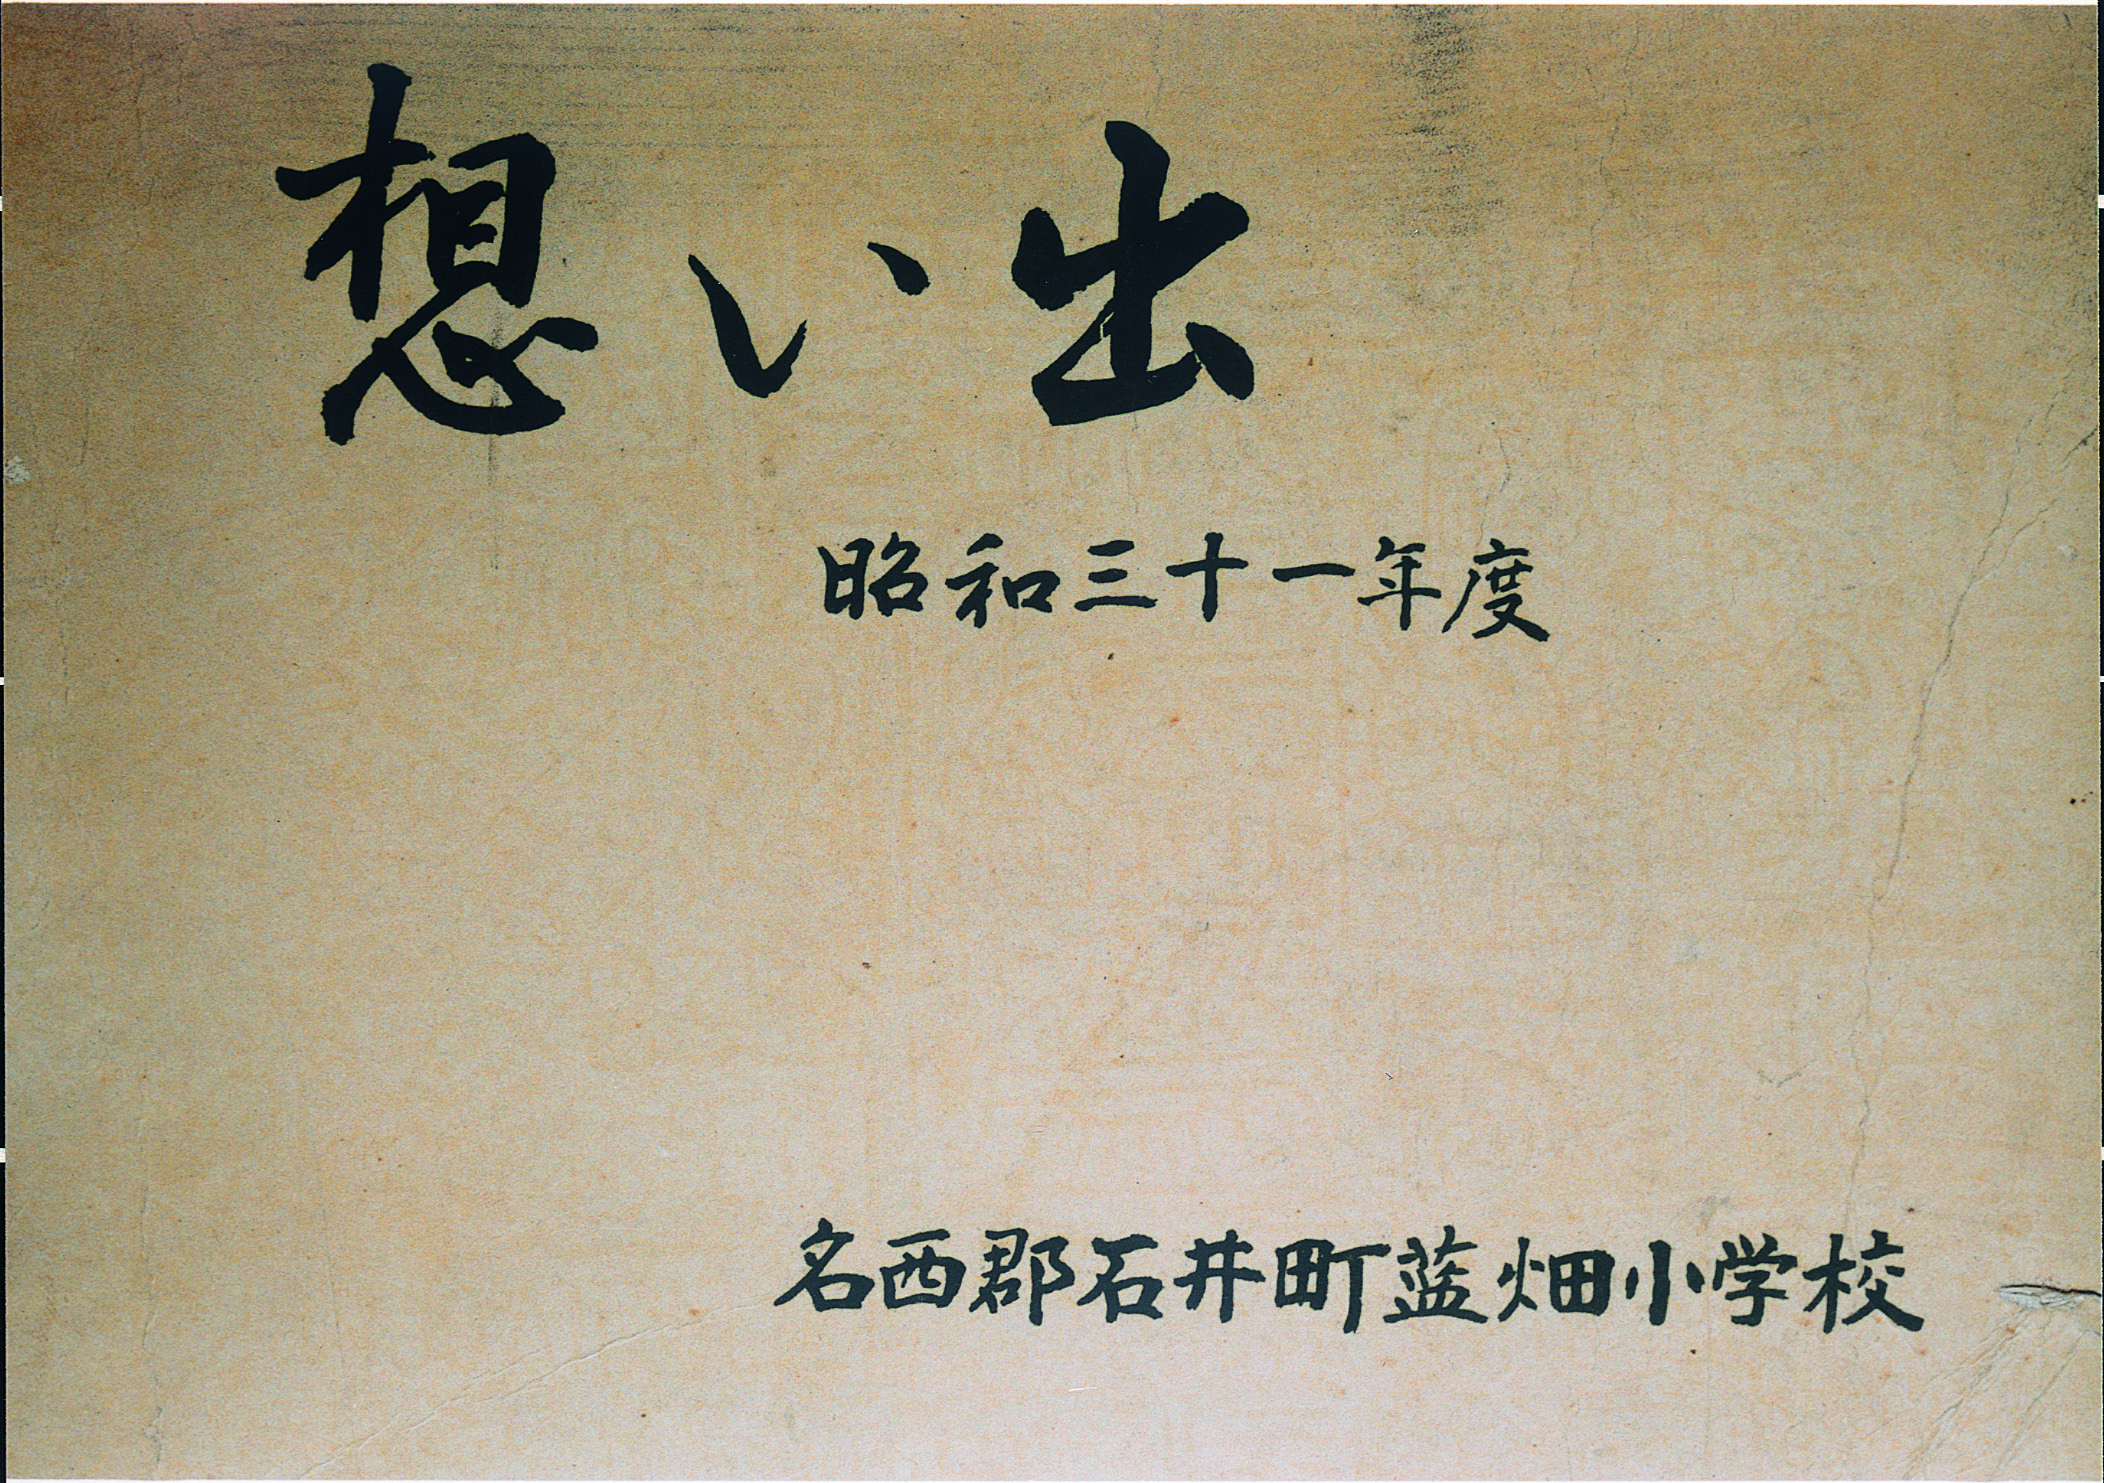 想い出
昭和三十一年度
名西郡石井町藍畑小学校